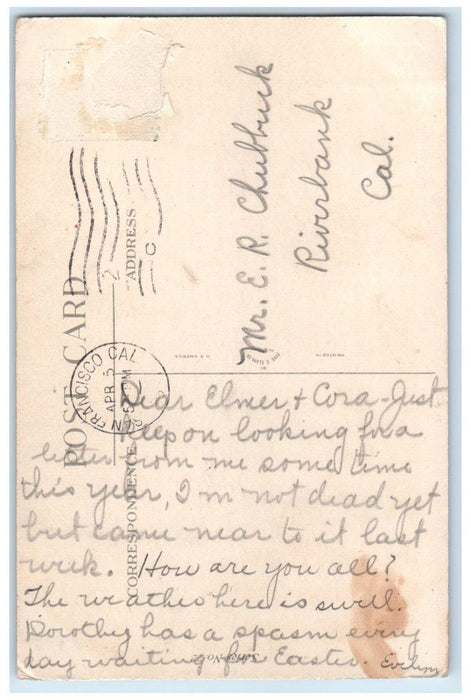 POST CARD
ADDRESS
CORRESPONDENCE
SAN FRANCISCO CAL
APR 5
5 PM
2
C
Mr. E. R. Chubbuck
Riverbank
Cal.
PRINTED IN
U.S. AMERICA
Dear Elmer + Cora - Just
keep on looking for a
letter from me some time
this year, I'm not dead yet
but came near to it last
week. How are you all?
The weather here is swell.
Dorothy has a spasm every
day waiting for Easter. Evelyn